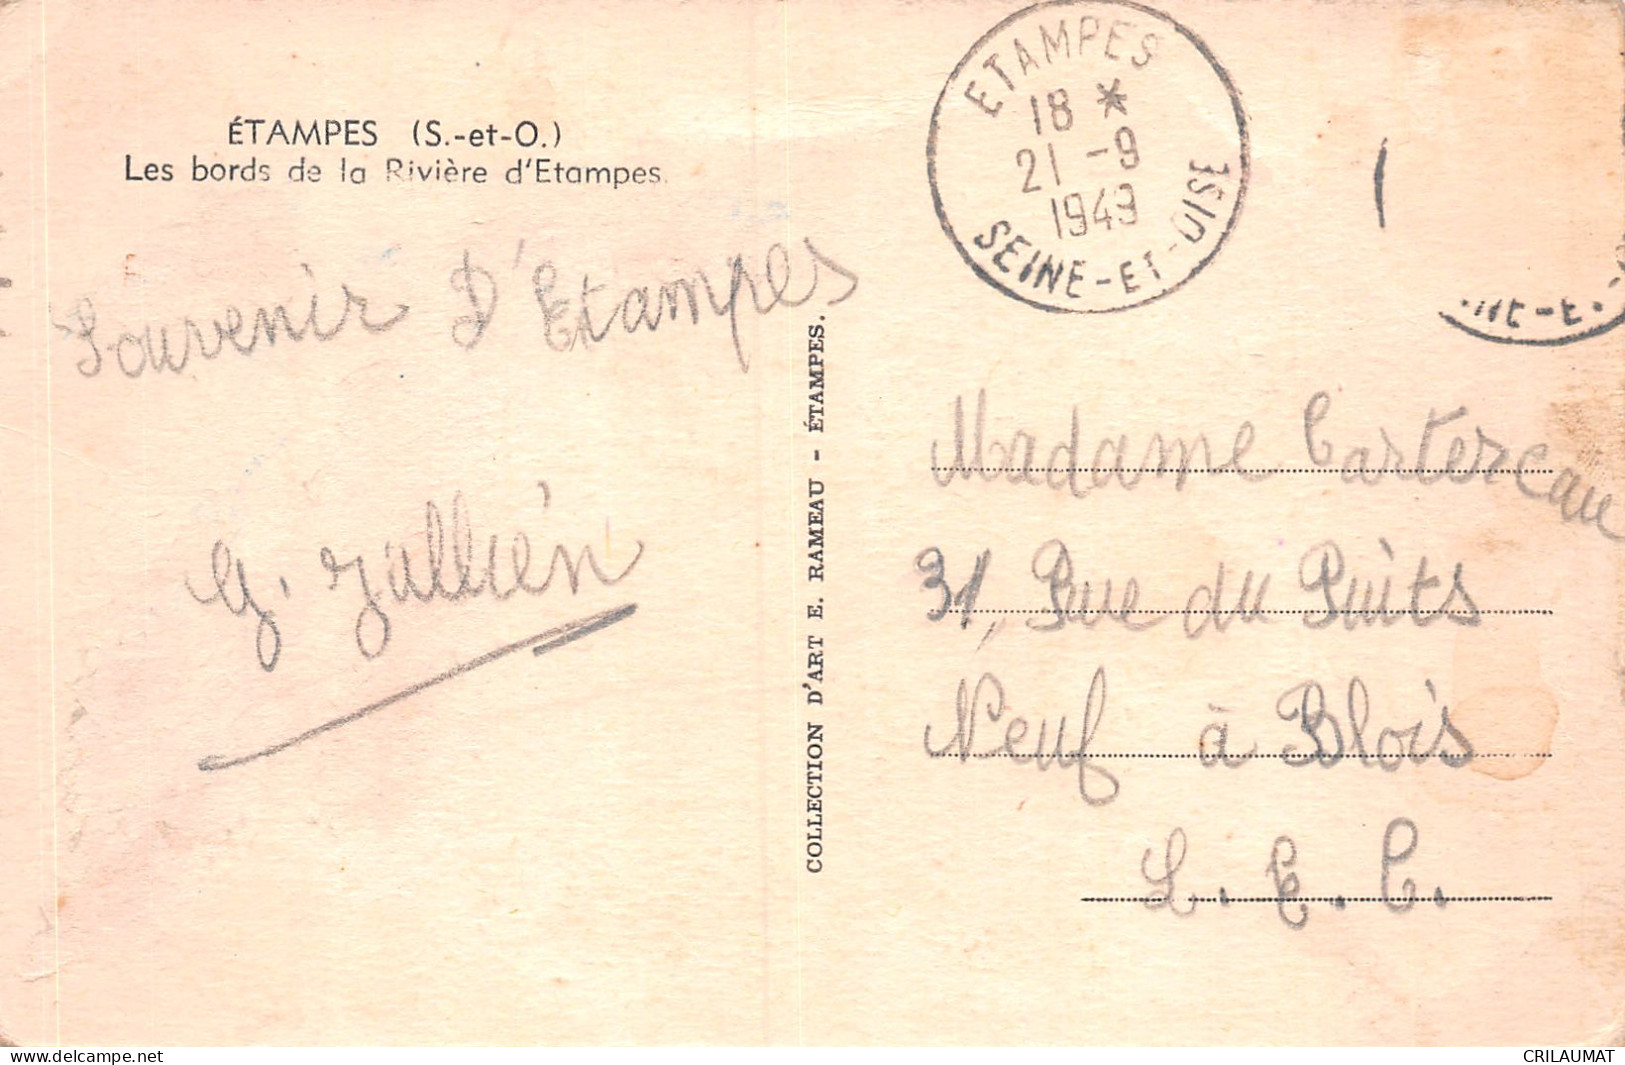 ÉTAMPES (S.-et-O.)
Les bords de la Rivière d'Etampes.
Souvenir D'Etampes
G. Jullien
COLLECTION D'ART E. RAMEAU - ÉTAMPES.
ETAMPES
18 *
21 -9
1949
SEINE-ET-OISE
Madame Cartereau
31, Rue du Puits
Neuf à Blois
L. E. C.
www.delcampe.net
CRILAUMAT